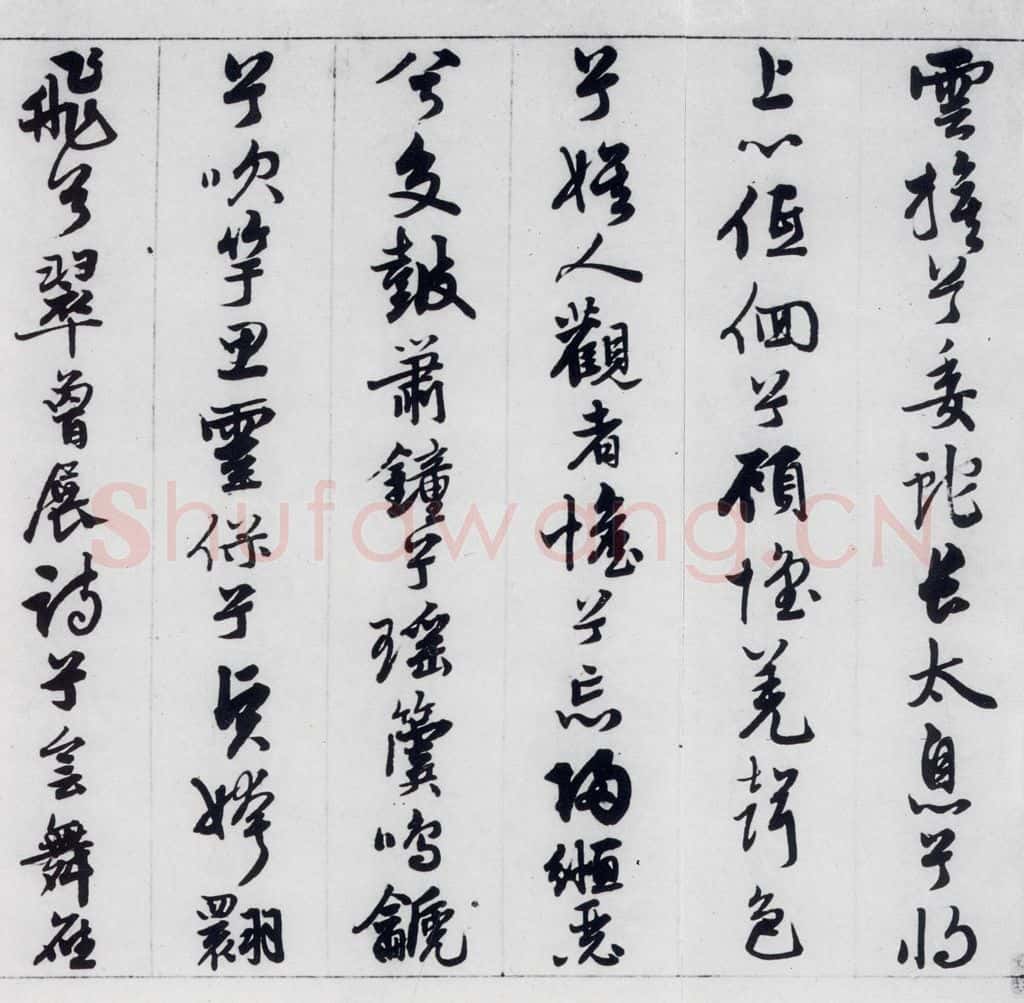 雲旗兮委蛇長太息兮將
上心低佪兮顧懷羌聲色
兮娛人觀者憺兮忘歸緪瑟
兮交鼓簫鐘兮瑤簴鳴䶵
兮吹竽思靈保兮賢姱翾
飛兮翠曾展詩兮會舞應
Shufawang.CN